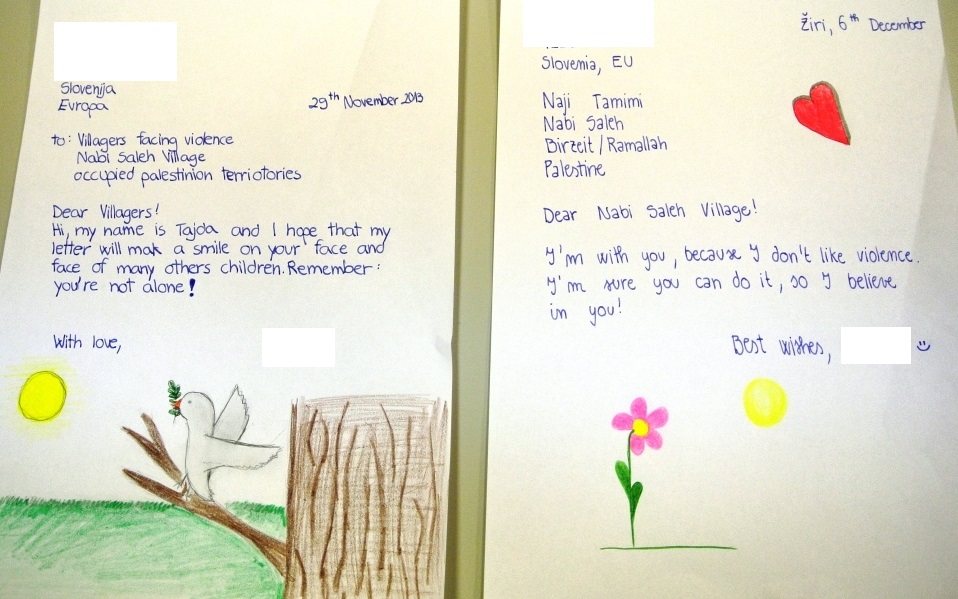 Slovenija
Evropa
29th November 2013
to: Villagers facing violence
Nabi Saleh Village
occupied palestinion terriotories
Dear Villagers!
Hi, my name is Tajda and I hope that my
letter will mak a smile on your face and
face of many others children. Remember:
you're not alone!
With love,
Žiri, 6th December
Slovenia, EU
Naji Tamimi
Nabi Saleh
Birzeit / Ramallah
Palestine
Dear Nabi Saleh Village!
I'm with you, because I don't like violence.
I'm sure you can do it, so I believe
in you!
Best wishes,